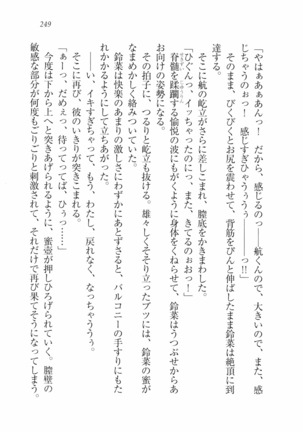 249
「やはぁぁあんっ！　だから、感じるのっ――航くんので、大きいので、また、感
じちゃうのぉっ！　感じすぎひゃうぅぅぅ――っ!!」
そのまま、びくびくとお尻を震わせて、背筋をぴんと伸ばしたまま鈴菜は絶頂に到
達する。
そこに航の屹立がさらに差しこまれ、膣底をかきまわした。
「ひぐんっ、イッちゃったのにっ、また、きてるのぉおっ！」
脊髄を蹂躙する愉悦の波にもがくように身体をくねらせて、鈴菜はうつぶせからあ
お向けの姿勢になる。
その拍子に、つるりと屹立も抜ける。雄々しくそそり立ったブツには、鈴菜の蜜が
なまめかしく絡みついていた。
鈴菜は快楽のあまりの激しさにわずかにあとずさると、バルコニーの手すりにもた
れかかるようにして立ちあがった。
「――い、イキすぎちゃって、もう、わたし、戻れなく、なっちゃうぅぅ」
そこに再び、彼のいきりが突きこまれる。
「ぁ――っ、だめぇっ、待ってってば、ひぅっ……」
今度は下から上へと突きあげられるように、蜜壺が押しひろげられていく。膣壁の
敏感な部分が何度もごりごりと刺激されて、それだけで再び果てそうになってしまう。